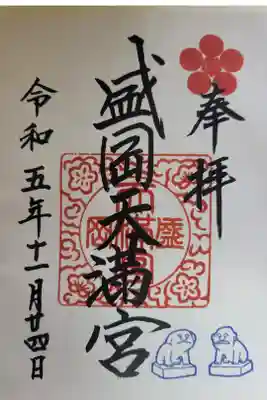 奉拝
盛岡天満宮
令和五年十一月廿四日